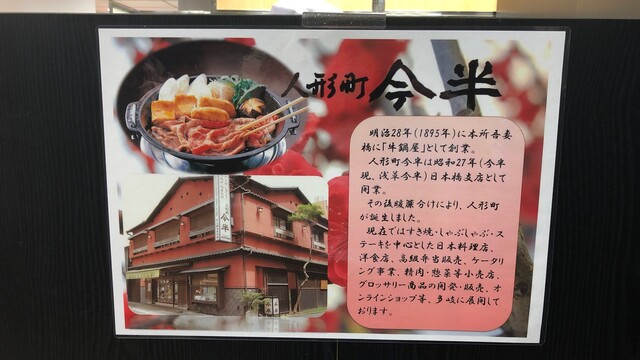 人形町 今半
明治28年(1895年)に本所吾妻
橋に「牛鍋屋」として創業。
人形町今半は昭和27年(今半
現、浅草今半)日本橋支店として
開業。
その後暖簾分けにより、人形町
が誕生しました。
現在ではすき焼・しゃぶしゃぶ・ス
テーキを中心とした日本料理店、
洋食店、高級弁当販売、ケータリ
ング事業、精肉・惣菜等小売店、
グロッサリー商品の開発・販売、オ
ンラインショップ等、多岐に展開して
おります。
今半